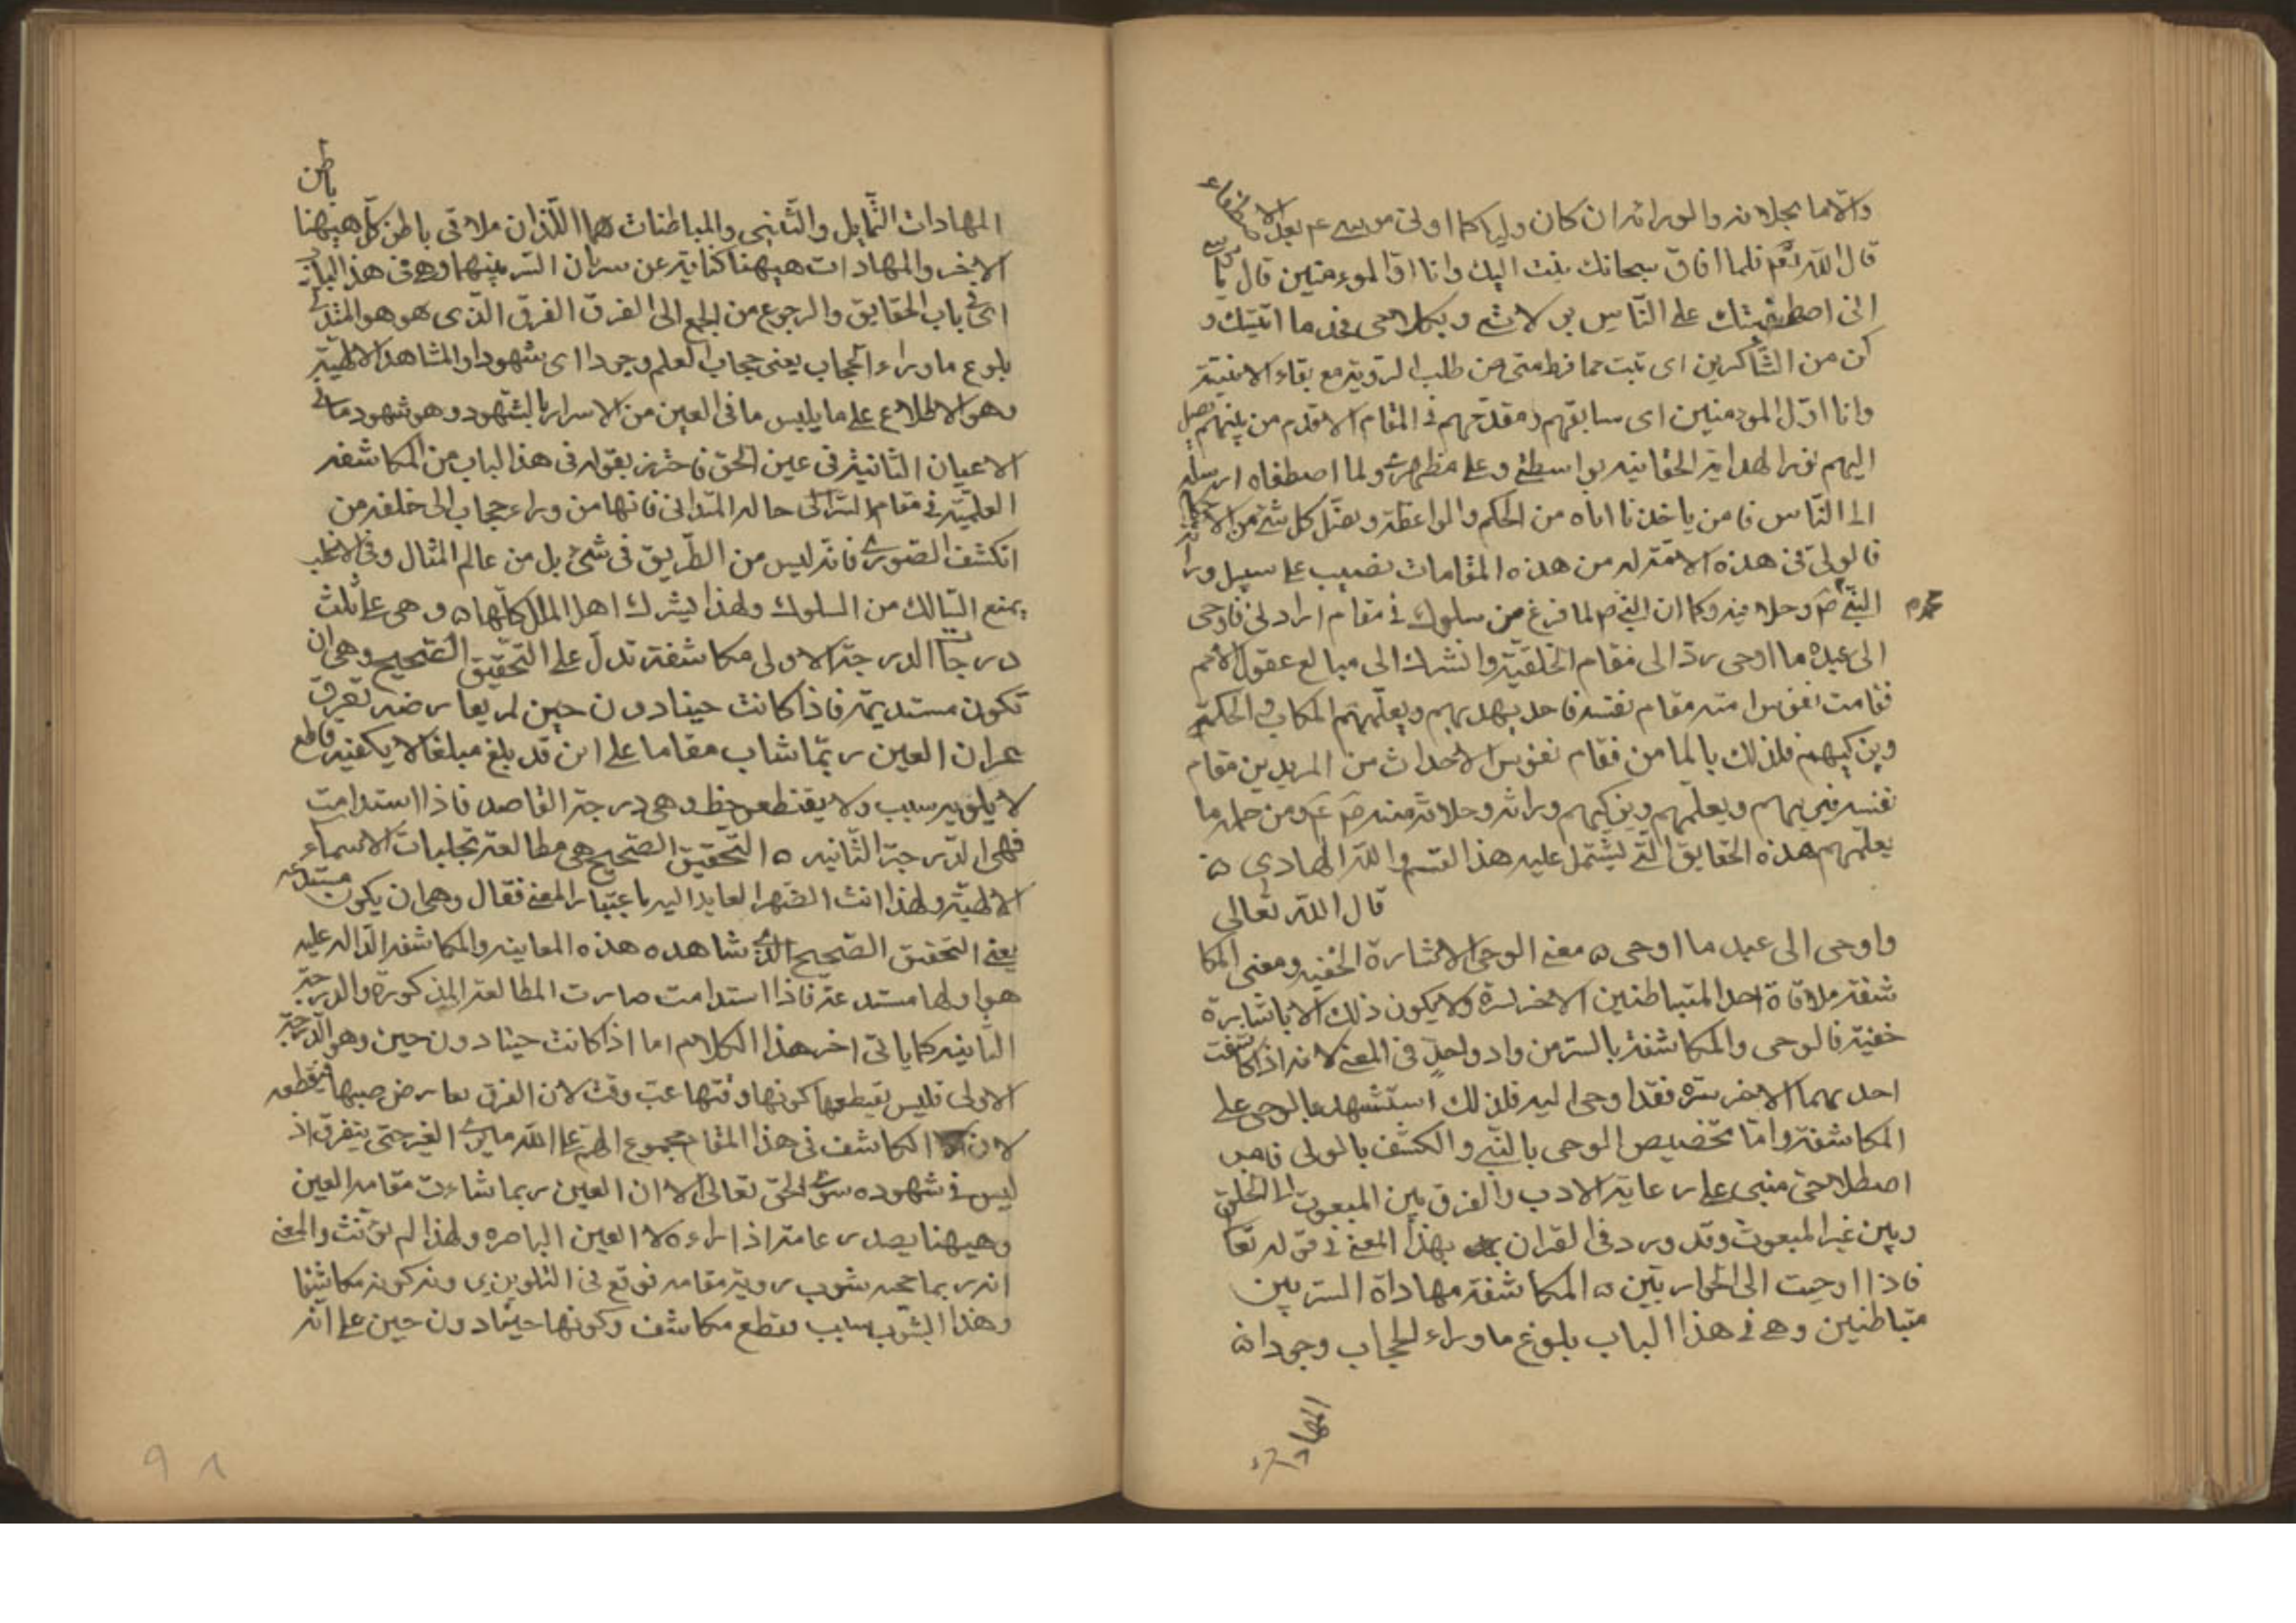 والا ما بجلاله والوراثه ان كان وليا كما اوتى موسى عم بعد الاصطفاء
قال الله تعم فلما افاق سبحانك تبت اليك وانا اول الموءمنين قال يا موسى
انى اصطفيتك على الناس برسالاتى وبكلامى فخذ ما اتيتك و
كن من الشاكرين اى تبت مما فرط منى من طلب الروية مع بقاء الاثنينية
وانا اول المومنين اى سابقهم ومقدمهم فى المقام الاقدم من بينهم يصل
اليهم نور الهداية الحقانيه بواسطتى وعلى مظهرى ولما اصطفاه ارسله
الى الناس فامر ياخذ ما اتاه من الحكم والمواعظة وتفصيل كل شئ
فالولى فى هذه الامة له من هذه المقامات نصيب على سبيل وراثة
محمد
النبى صم وحلافيه وكما ان النبى صم لما فرغ من سلوك فى مقام او ادنى فاوحى
الى عبده ما اوحى رد الى مقام الخلقية وانشرك الى مبالع عقول الامم
فقامت نفوس امته مقام نفسه فاحد يهديهم ويعلمهم الكتاب والحكمة
ويزكيهم فلذلك بالمامن فقام نفوس الاحداث من المريدين مقام
نفسه فيربيهم ويعلمهم ويزكيهم وراثه وحلافة منه صم عم ومن حمله ما
يعلمهم هذه الحقايق التى يشتمل عليه هذا القسم والله الهادى ه
قال الله تعالى
واوحى الى عبد ما اوحى ه معنى الوحى الاشارة الخفيه ومعنى المكا
شفة ملاقاة احد المتباطنين الاخر لسرة ولا يكون ذلك الا باشارة
خفية فالوحى والمكاشفة بالستر من واد واحد فى المعنى لانه اذا كاشفت
احديهما الاخر سره فقد اوحى اليه فلذلك استشهد بالوحى على
المكاشفة واما تخصيص الوحى بالنبى والكشف بالولى فامر
اصطلاحى منبى على رعاية الادب والفرق بين المبعوث الى الخلق
وبين غير المبعوث وقد ورد فى القران بهذا المعنى فى قوله تعا
فاذا اوحيت الى الحواريين ه المكاشفة مهاداة السر بين
متباطنين وهى فى هذا الباب بلوغ ما وراء الحجاب وجودا ه
المهادات
باطن
المهادات التمايل والتانى والمباطنات هما اللذان ملاقى باطن كل هيهنا
الاخر والمهادات هيهنا كناية عن سريان السر بينهما وهى فى هذا الباب
اى فى باب الحقايق والرجوع من الجمع الى الفرق الفرق الذى هو هو
بلوغ ما وراء الحجاب يعنى حجاب العلم وجودا اى شهودا والمشاهد الالهية
وهو الاطلاع على ما يلبس ما فى العين من الاسرار بالشهود وهو شهود ما فى
الاعيان الثانية فى عين الحق فاحترز بقوله فى هذا الباب من المكاشفه
العلمية فى مقام السر الى حاله التدانى فانها من وراء حجاب الى خلفه من
انكشف الصورى فانه ليس من الطريق فى شئ بل من عالم المثال وفى الاغلب
يمنع السالك من السلوك ولهذا يشرك اهل الملل كلها ه وهى على ثلث
درجات الدرجة الاولى مكاشفة تدل على التحقيق الصحيح وهى ان
تكون مستديمة فاذا كانت حينا دون حين لم يعارضه تفرق
غير ان العين ربما شاب مقاما على انه قد بلغ مبلغا لا يكفيه قاطع
لا يلويه سبب ولا يقتطعه حظ وهى درجة القاصد فاذا استدامت
فهى الدرجة الثانيه ه التحقيق الصحيح هى مطالعة تجليات الاسماء
الالهية ولهذا انث الضمير العايد اليه باعتبار المعنى فقال وهى ان يكون مستديمة
يعنى التحقيق الصحيح الذى شاهده هذه المعاينه والمكاشفه الداله عليه
هو اولها مستدعة فاذا استدامت صارت المطالعة المذكورة والدرجة
الثانيه كما ياتى اخر هذا الكلام اما اذا كانت حينا دون حين وهو الدرجة
الاولى فليس يقطعها كونها وقتها غب وقت لان الفرق يعارض صبها فيقطعه
لان المكاشف فى هذا المقام مجموع الهم على الله ما يرى الغير حتى يتفرق اذ
ليس فى شهوده سوى الحق تعالى الا ان العين ربما شاءت مقامه العين
وهيهنا يصدر عامة اذا راءه لا العين الباصره ولهذا لم يؤنث والمعنى
انه ربما صحه شوب روية مقامه فوقع فى التلوين وند كونه مكاشفا
وهذا الشوب سبب يقطع مكاشف وكونها حينا دون حين على انه
٩٨